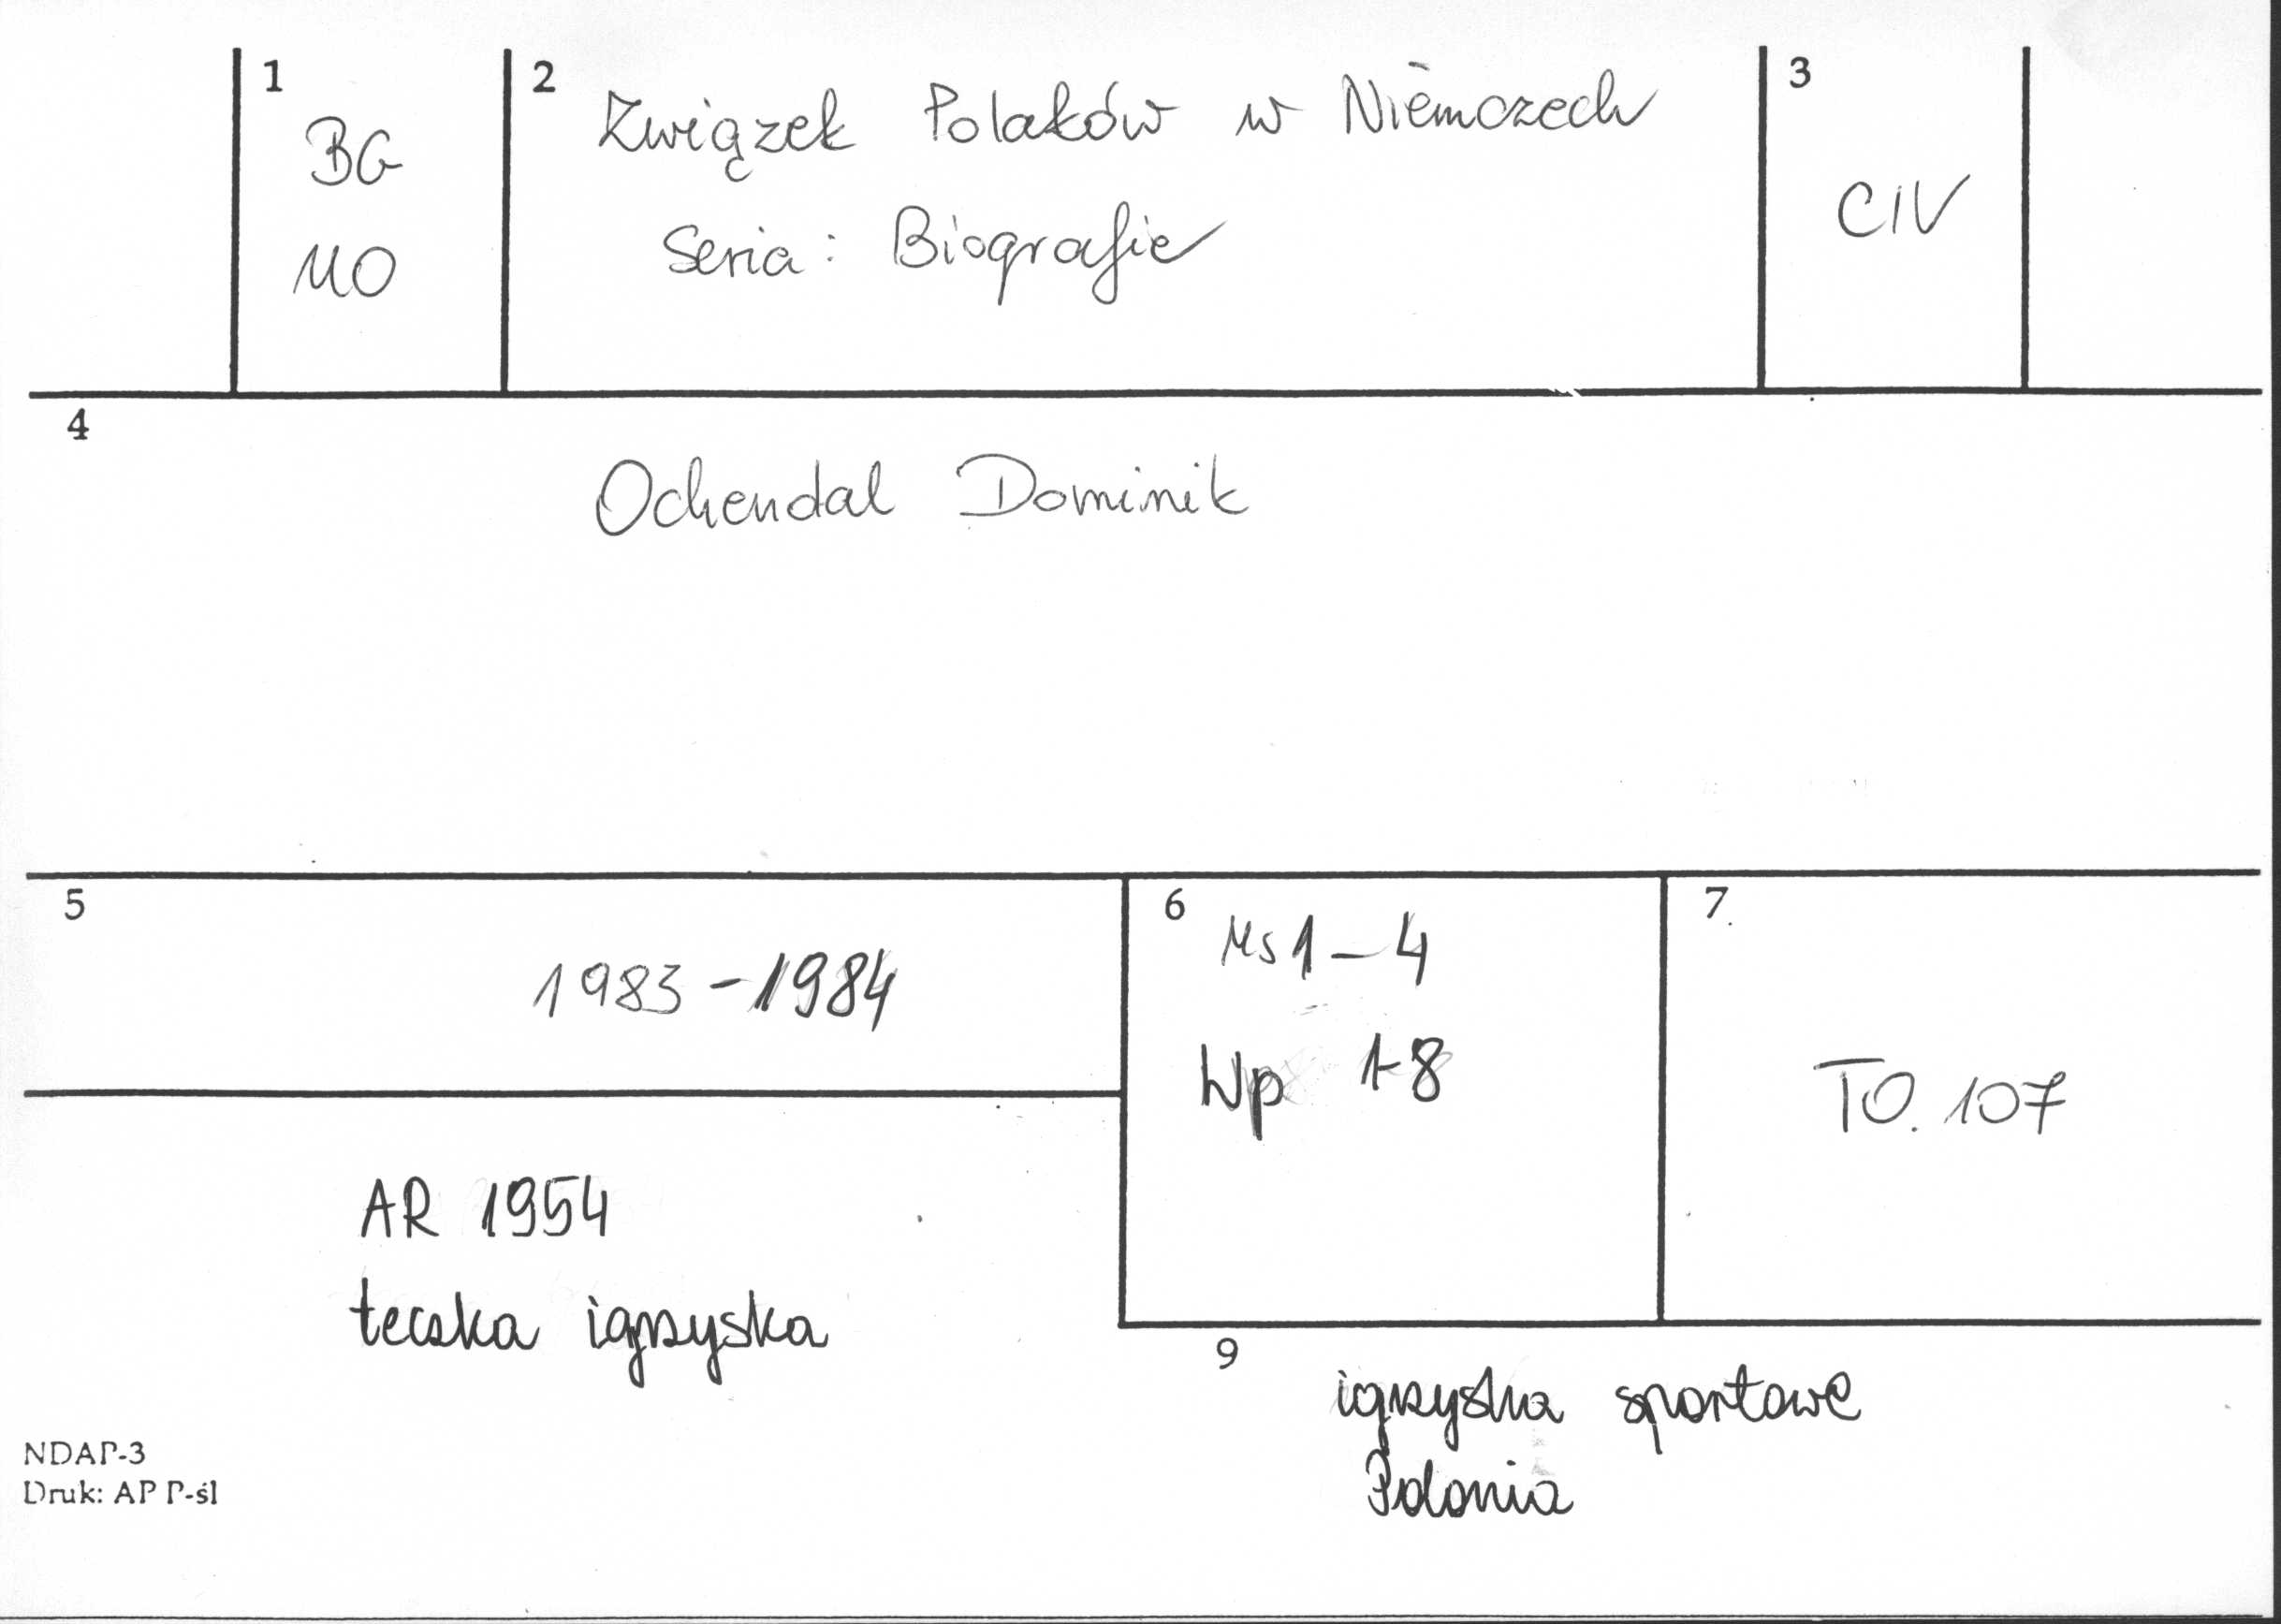 1
BG
MO
2
Związek Polaków w Niemczech
Seria: Biografie
3
CIV
4
Ochendal Dominik
5
1983-1984
6
Ms 1-4
Wp 1-8
7
TO. 107
AR 1954
teczka igrzyska
9
igrzyska sportowe
Polonia
NDAP-3
Druk: AP P-śl